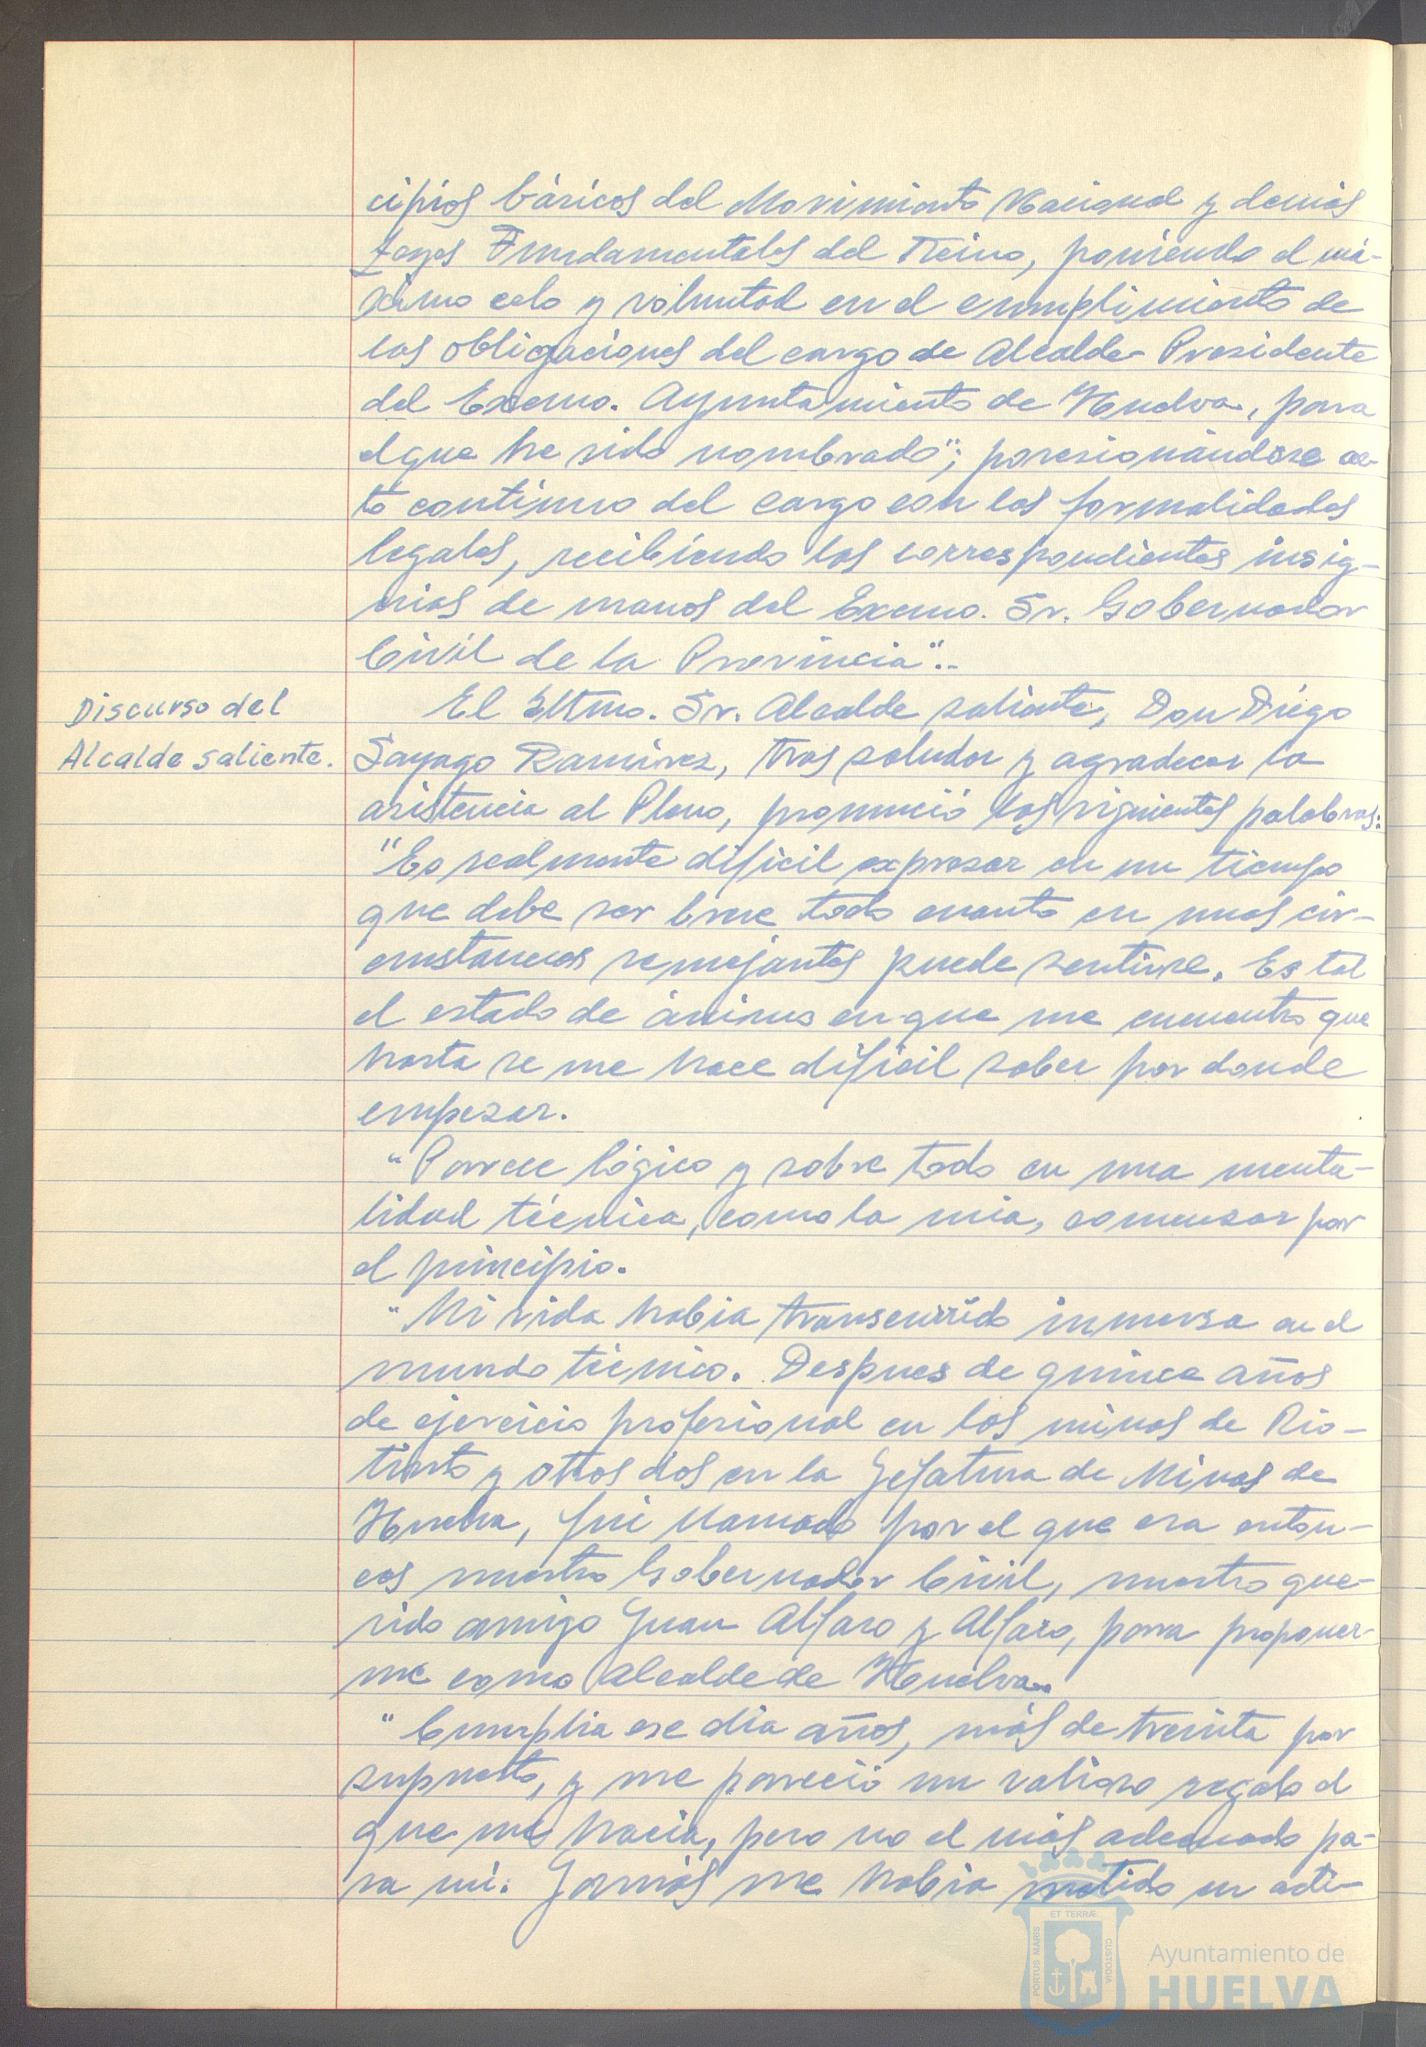 cipios básicos del Movimiento Nacional y demás
Leyes Fundamentales del Reino, poniendo el má-
ximo celo y voluntad en el cumplimiento de
las obligaciones del cargo de Alcalde-Presidente
del Excmo. Ayuntamiento de Huelva, para
el que he sido nombrado"; posesionándose ac-
to contínuo del cargo con las formalidades
legales, recibiendo las correspondientes insig-
nias de manos del Excmo. Sr. Gobernador
Civil de la Provincia".-
Discurso del
Alcalde saliente.
El Iltmo. Sr. Alcalde saliente, Don Diego
Sayago Ramírez, tras saludar y agradecer la
asistencia al Pleno, pronunció las siguientes palabras:
"Es realmente difícil expresar en un tiempo
que debe ser breve todo cuanto en unas cir-
cunstancias semejantes puede sentirse. Es tal
el estado de ánimo en que me encuentro que
hasta se me hace difícil saber por donde
empezar.
"Parece lógico y sobre todo en una menta-
lidad técnica, como la mia, comenzar por
el principio.
"Mi vida habia transcurrido inmersa en el
mundo técnico. Despues de quince años
de ejercicio profesional en las minas de Rio-
tinto y otros dos en la Jefatura de Minas de
Huelva, fui llamado por el que era enton-
ces nuestro Gobernador Civil, nuestro que-
rido amigo Juan Alfaro y Alfaro, para proponer-
me como Alcalde de Huelva.
"Cumplia ese dia años, más de treinta por
supuesto, y me pareció un valioso regalo el
que me hacia, pero no el más adecuado pa-
ra mí. Jamás me habia metido en acti-
PORTUS MARIS
ET TERRÆ
CUSTODIA
Ayuntamiento de
HUELVA